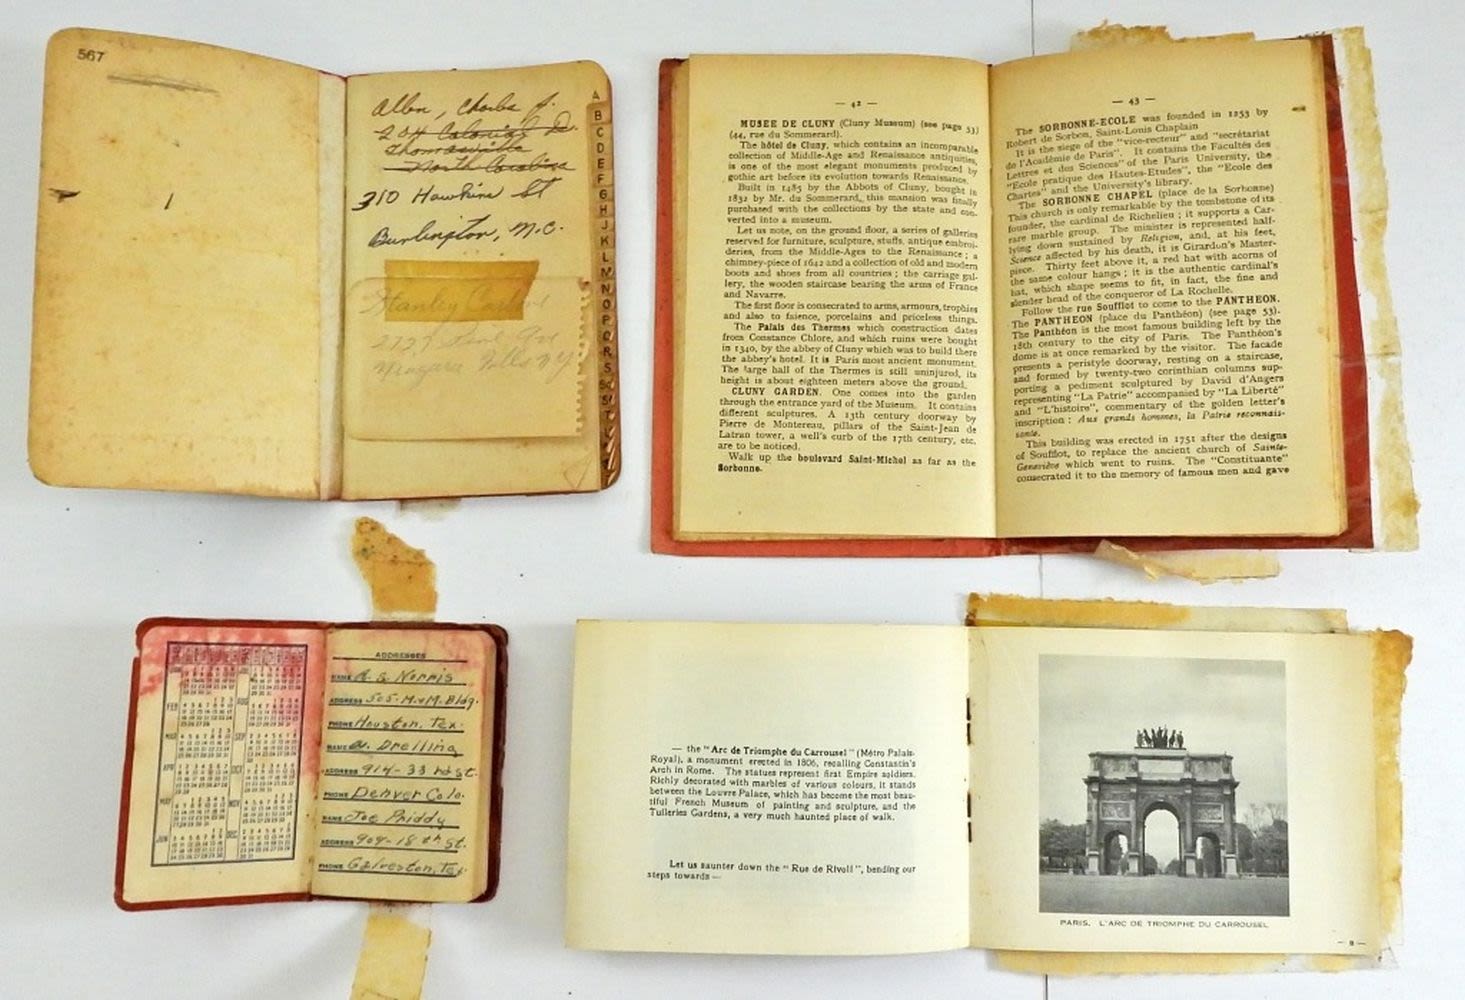 567
Allen, Charles J.
204 Colonial D.
Thomasville
North Carolina
310 Hawkins St
Burlington, N.C.
Stanley
2127
Niagara Falls N Y
A
B
C
D
E
F
G
H
J
K
L
M
N
O
P
Q
R
S
T
— 42 —
MUSEE DE CLUNY (Cluny Museum) (see page 53)
(44, rue du Sommerard).
The hôtel de Cluny, which contains an incomparable
collection of Middle-Age and Renaissance antiquities,
is one of the most elegant monuments produced by
gothic art before its evolution towards Renaissance.
Built in 1485 by the Abbots of Cluny, bought in
1832 by Mr. du Sommerard, this mansion was finally
purchased with the collections by the state and con-
verted into a museum.
Let us note, on the ground floor, a series of galleries
reserved for furniture, sculpture, stuffs, antique embroi-
deries, from the Middle-Ages to the Renaissance; a
chimney-piece of 1642 and a collection of old and modern
boots and shoes from all countries; the carriage gal-
lery, the wooden staircase bearing the arms of France
and Navarre.
The first floor is consecrated to arms, armours, trophies
and also to faience, porcelains and priceless things.
The Palais des Thermes which construction dates
from Constance Chlore, and which ruins were bought
in 1340, by the abbey of Cluny which was to build there
the abbey's hotel. It is Paris most ancient monument.
The large hall of the Thermes is still uninjured, its
height is about eighteen meters above the ground.
CLUNY GARDEN. One comes into the garden
through the entrance yard of the Museum. It contains
different sculptures. A 13th century doorway by
Pierre de Montereau, pillars of the Saint-Jean de
Latran tower, a well's curb of the 17th century, etc.
are to be noticed.
Walk up the boulevard Saint-Michel as far as the
Sorbonne.
— 43 —
The SORBONNE-ECOLE was founded in 1253 by
Robert de Sorbon, Saint-Louis Chaplain
It is the siege of the "vice-recteur" and "secrétariat
de l'Académie de Paris". It contains the Facultés des
Lettres et des Sciences" of the Paris University, the
"Ecole pratique des Hautes-Etudes", the "Ecole des
Chartes" and the University's library.
The SORBONNE CHAPEL (place de la Sorbonne)
This church is only remarkable by the tombstone of its
founder, the cardinal de Richelieu; it supports a Car-
rare marble group. The minister is represented half-
lying down sustained by Religion, and, at his feet,
Science affected by his death, it is Girardon's Master-
piece. Thirty feet above it, a red hat with acorns of
the same colour hangs; it is the authentic cardinal's
hat, which shape seems to fit, in fact, the fine and
slender head of the conqueror of La Rochelle.
Follow the rue Soufflot to come to the PANTHEON.
The PANTHEON (place du Panthéon) (see page 53).
The Panthéon is the most famous building left by the
18th century to the city of Paris. The Panthéon's
dome is at once remarked by the visitor. The facade
presents a peristyle doorway, resting on a staircase,
and formed by twenty-two corinthian columns sup-
porting a pediment sculptured by David d'Angers
representing "La Patrie" accompanied by "La Liberté"
and "L'histoire", commentary of the golden letter's
inscription: Aus grands hommes, la Patrie reconnais-
sante.
This building was erected in 1751 after the designs
of Soufflot, to replace the ancient church of Sainte-
Geneviève which went to ruins. The "Constituante"
consecrated it to the memory of famous men and gave
FEB
MAR
APR
MAY
JUN
AUG
SEP
OCT
NOV
DEC
ADDRESSES
NAME A. S. Norris
ADDRESS 505- M&M. Bldg.
PHONE Houston, Tex.
NAME A. Drelling
ADDRESS 914- 33 rd st.
PHONE Denver Colo.
NAME Joe Priddy
ADDRESS 909- 18 th st.
PHONE Galveston, Tex.
— the "Arc de Triomphe du Carrousel" (Métro Palais-
Royal), a monument erected in 1806, recalling Constantin's
Arch in Rome. The statues represent first Empire soldiers.
Richly decorated with marbles of various colours, it stands
between the Louvre Palace, which has become the most beau-
tiful French Museum of painting and sculpture, and the
Tuileries Gardens, a very much haunted place of walk.
Let us saunter down the "Rue de Rivoli", bending our
steps towards —
PARIS. L'ARC DE TRIOMPHE DU CARROUSEL
— 8 —